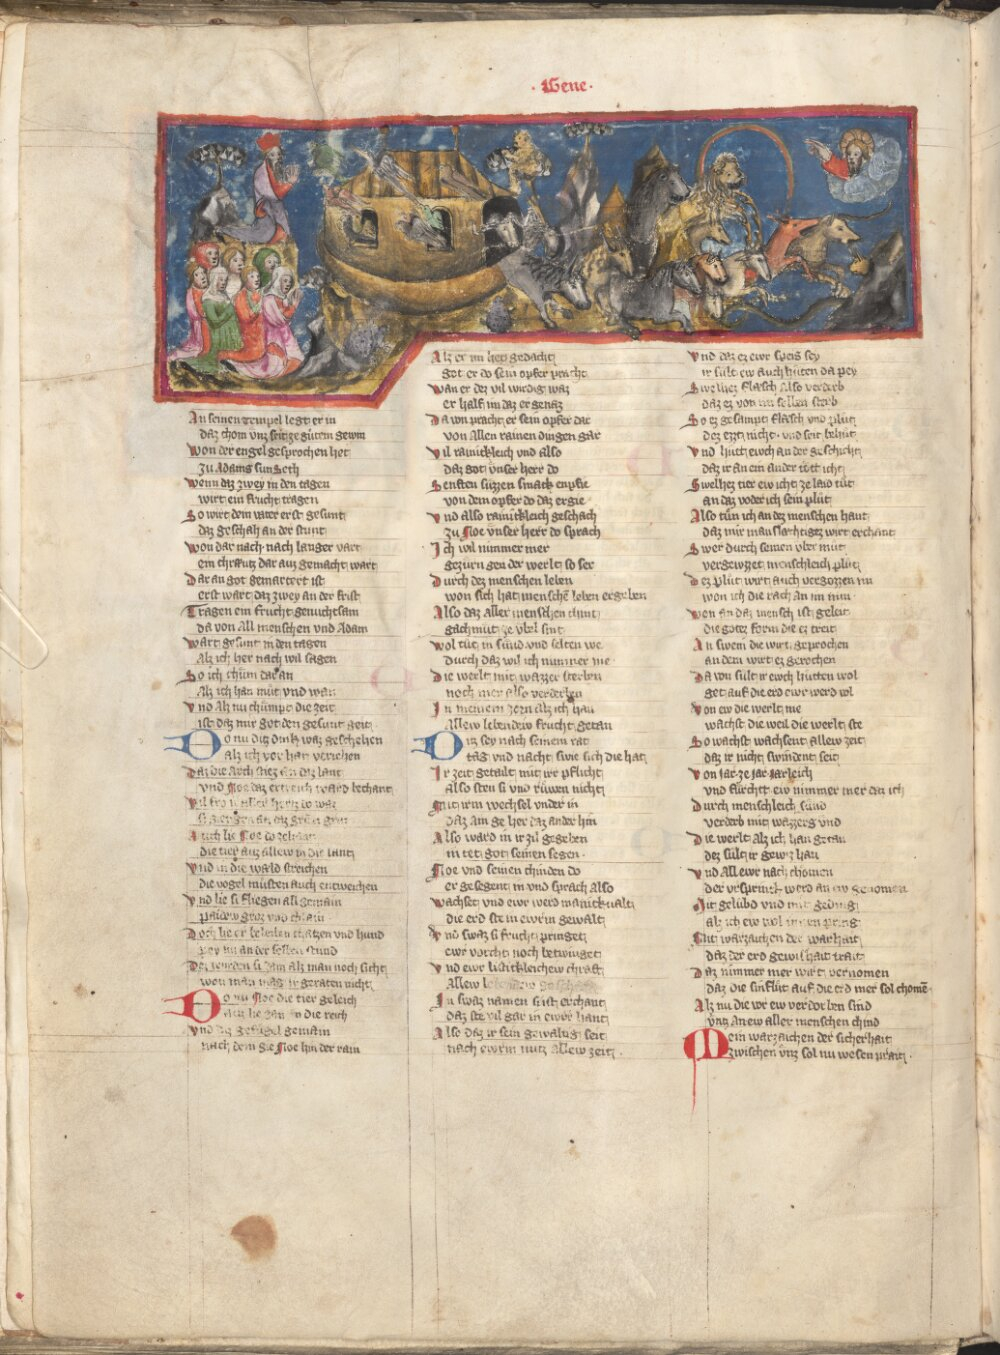 · Gene ·
An seinen tempel legt er in
daz chom vnz seit ze gutem gewin
Won der engel gesprochen het
zu Adams sun Seth
Wenn daz zwey in den tagen
wirt ein frucht tragen
So wirt dem vater erst gesunt
daz geschah an der stunt
Won dar nach nach langer vart
ein chrawtz dar auz gemacht wart
Dar an got gemartert ist
erst wart daz zwey an der frist
Tragen ein frucht genuchtsam
da von all menschen vnd Adam
Wart gesunt in den tagen
Als ich her nach wil sagen
So ich chum dar an
Als ich han mut vnd wan
Vnd als nu chumpt die zeit
ist daz mir got den gesunt geit
Do nu ditz dink waz geschehen
als ich vor han veriehen
Daz die Arch stiez an daz lant
vnd Noe daz ertreich ward bechant
Auch lie Noe do zehant
die tier auz allew in die lant
Vnd in die wald streichen
die vogel musten auch entweichen
Vnd lie si fliegen all gemain
paidew groz vnd chlain
Doch lie er beleiben chatzen vnd hund
pey im an der selben stund
Die wurden si zam als man noch sicht
won man mag ir geraten nicht
Do nu Noe die tier geleich
auz lie gan in die reich
Vnd daz gefugel gemain
nach dem gie Noe hin der rain
Alz er im het gedacht
got er do sein opfer pracht
Wan er dez vil wirdig waz
er half im daz er genaz
Da von pracht er sein opfer dar
von allen rainen dingen gar
Vil rainickleich vnd also
daz got vnser herr do
Senften suzzen smack enpfie
von dem opfer do daz ergie
Vnd also rainickleich geschach
zu Noe vnser herr do sprach
Ich wil nimmer mer
gezurn gen der werlt so ser
Durch dez menschen leben
won sich hat mensche leben ergeben
Also daz aller menschen chint
gachmut ze vbel sint
Wol tut in sund vnd selten we
durch daz wil ich nimmer me
Die werlt mit wazzer sterben
noch mer also verderben
In meinem zorn als ich han
allew lebendew frucht getan
Ditz sey nach seinem rat
tag vnd nacht swie sich die hat
Ir zeit getailt mit irr pflicht
also sten si vnd ruwen nicht
Mit irm wechsel vnder in
daz ain ge her daz ander hin
Also ward in ir zil gegeben
in tet got seinen segen ·
Noe vnd seinen chinden do
er gesegent in vnd sprach also
Wachset vnd ewr werd manickualt
die erd ste in ewrm gewalt
Vnd swaz si frucht pringet
ewr vorcht noch betwinget
Vnd ewr lawtkleichew chraft
Allew
In swaz namen si ist erchant
daz ste vil gar in ewrr hant
Also daz ir sein gewaltig seit
nach ewrm nutz allew zeit ·
Vnd daz ez ewr speis sey
ir sult ew auch huten da pey
Swelhez flaisch also verderb
daz ez von im selben sterb
So ez gesampt flaisch vnd plut
dez ezzt nicht · vnd seit behut
Vnd hutt ewch an der geschicht
daz ir an ein ander tott icht
Swelhez tier ew icht ze laid tut
an daz voder ich sein plut
Also tun ich an dez menschen hant
daz mir manslachtigez wirt erchant
Swer durch seinen vber mut
vergewzzet menschleich plut
Dez plut wirt auch vergozzen im
won ich die rach an im nim
Won an daz mensch ist geleit
die gotez form die ez treit
An swem die wirt gesprochen
an dem wirt ez gerochen
Da von sult ir ewch hutten wol
get auf die erd ewr werd vol
Von ew die werlt me
wachst die weil die werlt ste
So wachst wachsent allew zeit
daz ir nicht swindent seit
Von jar ze jar jarleich
vnd furcht ew nimmer mer daz ich
Durch menschleich sund
verderb mit wazzers vnd
Die werlt als ich han getan
dez sult ir gewis han
Vnd all ewr nach chomen
der vrsprinch werd an ew genomen
Mit gelubd vnd mit geding
als ich ew wol
Mit warzaichen der warhait
daz der erd gewishait trait
Daz nimmer mer wirt vernomen
daz die sinflut auf die erd mer sol chome
Als nu die vor ew verdorben sind
vnz an ew aller menschen chind
Mein warzaichen der sicherhait
zwischen vnz sol nu wesen prait ·